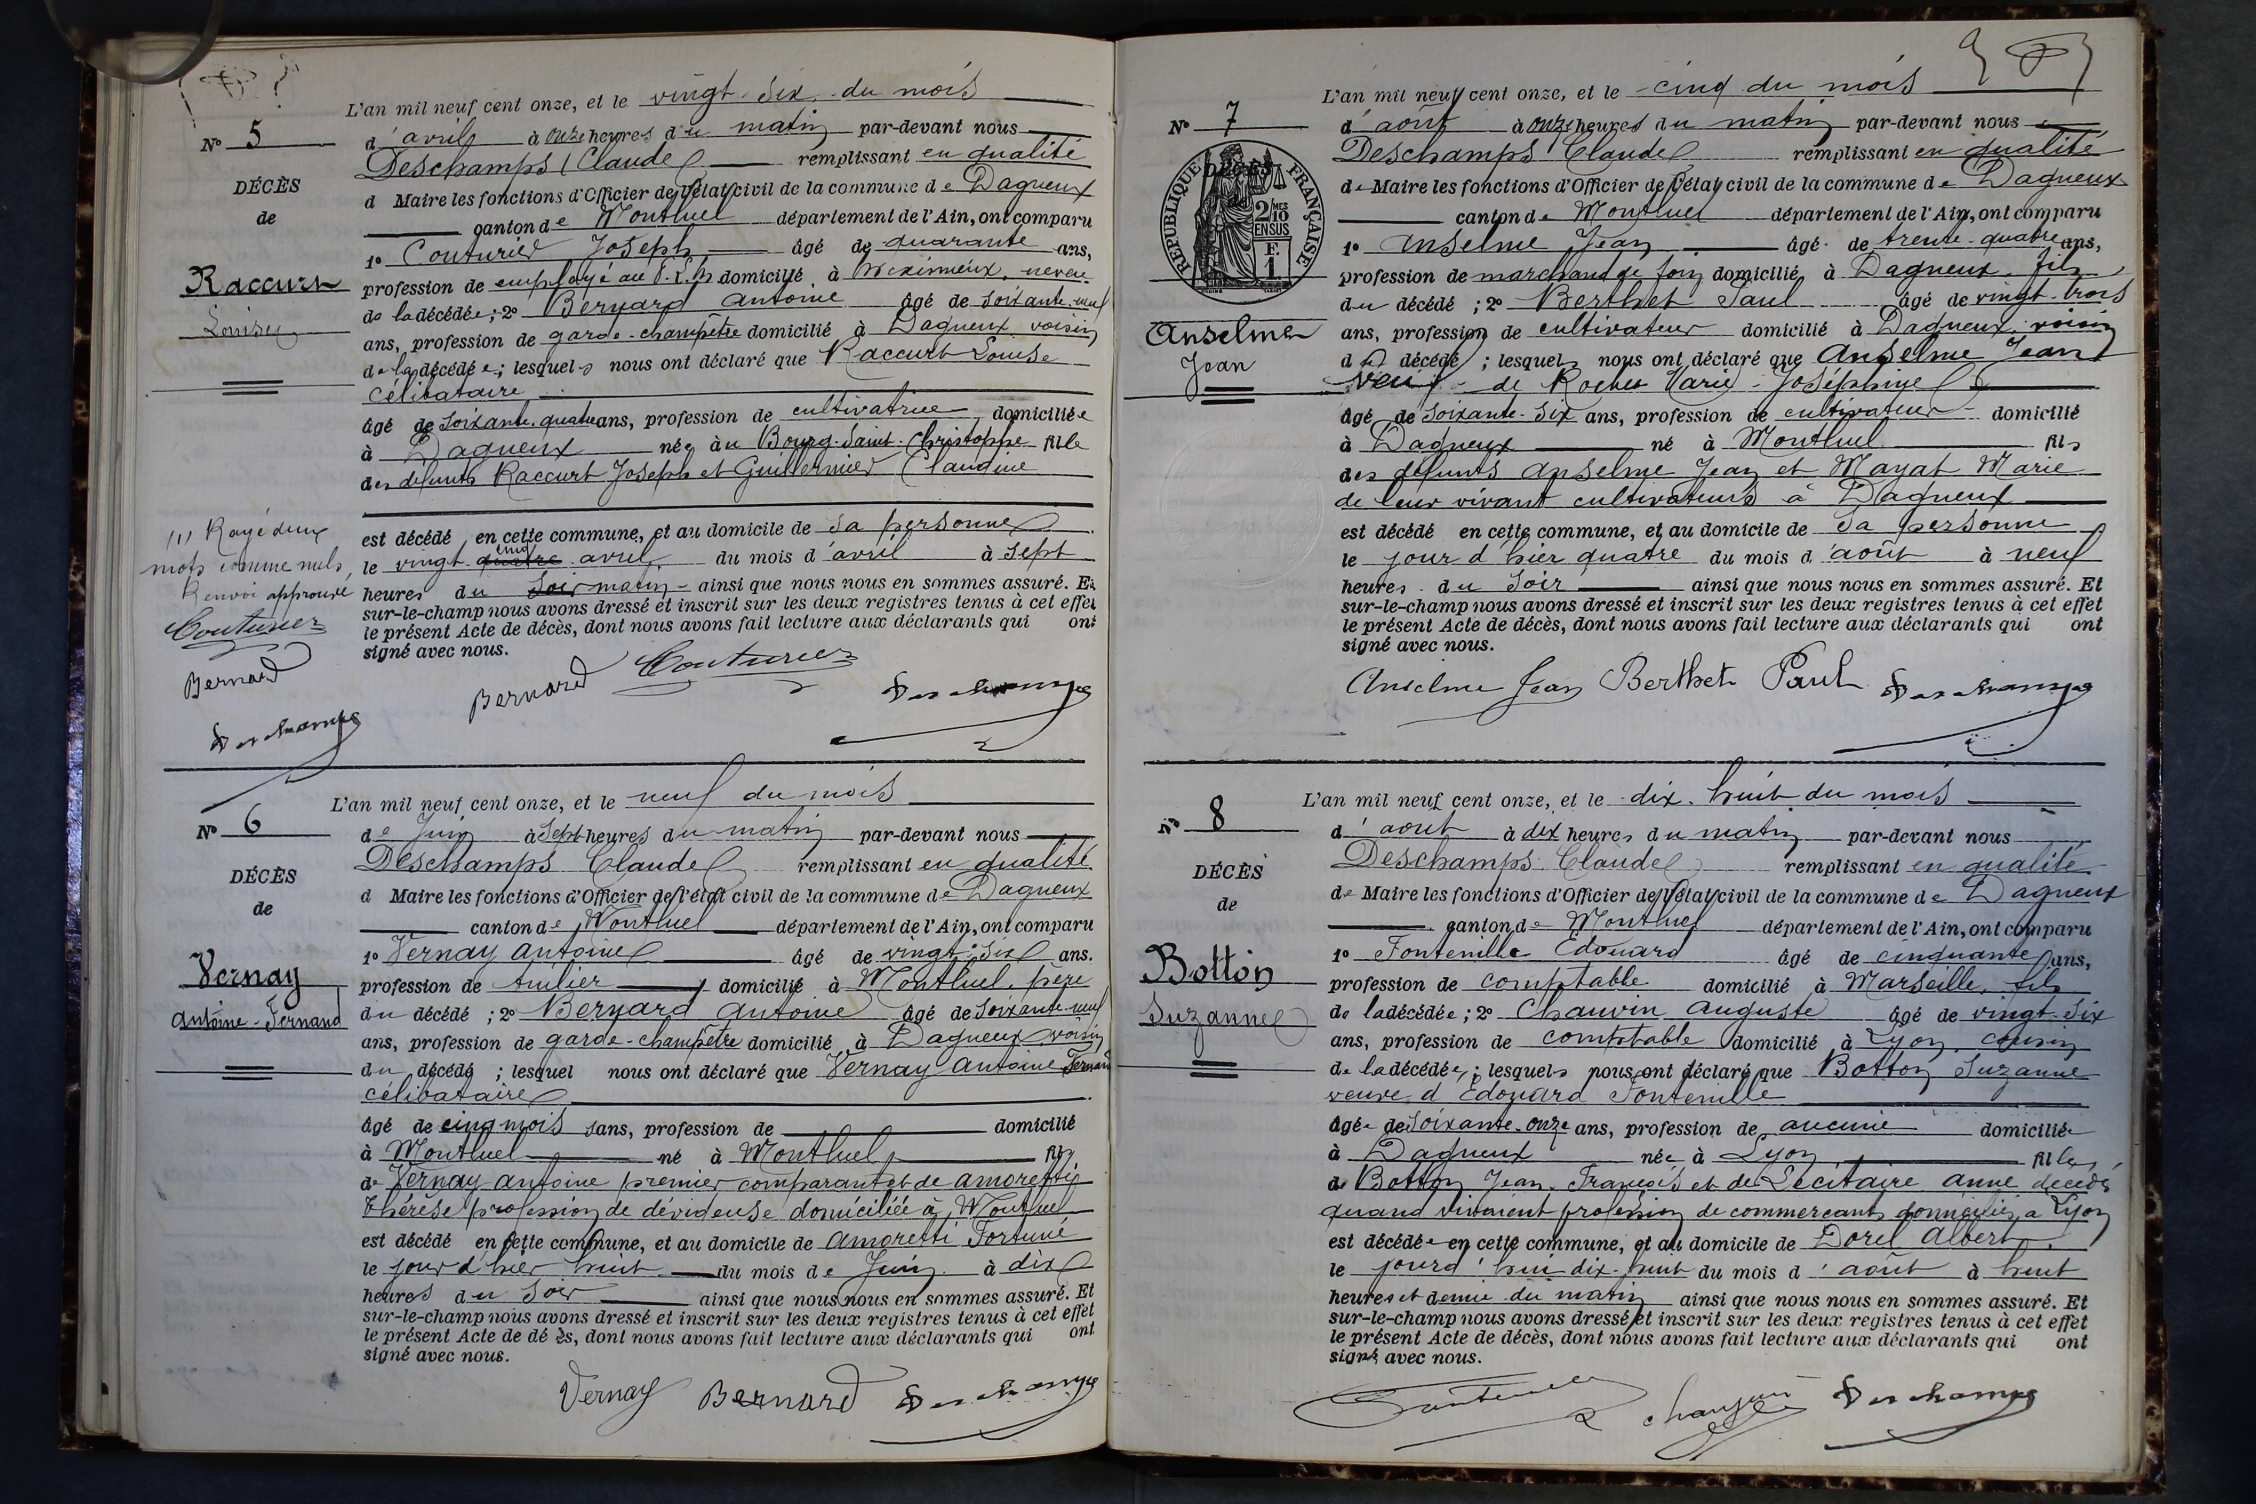 L'an mil neuf cent onze, et le vingt-six du mois
No 5
d'avril à onze heures du matin par-devant nous
Deschamps Claude remplissant en qualité
DÉCÈS
d Maire les fonctions d'Officier de l'état civil de la commune de Dagneux
de
canton de Montluel département de l'Ain, ont comparu
1o Couturier Joseph âgé de quarante ans,
Raccurt
profession de employé au P.L.M. domicilié à Meximieux, neveu
Louise
de la décédée; 2o Bernard Antoine âgé de soixante-neuf
ans, profession de garde-champêtre domicilié à Dagneux voisin
de la décédée; lesquels nous ont déclaré que Raccurt Louise
célibataire
âgé de soixante-quatre ans, profession de cultivatrice domiciliée
à Dagneux née à u Bourg-Saint-Christophe fille
des defunts Raccurt Joseph et Guillermier Claudine
est décédé en cette commune, et au domicile de sa personne
Rayé deux
mots comme nuls,
Renvoi approuvé
le vingt quatre cinq avril du mois d'avril à sept
heures du soir matin ainsi que nous nous en sommes assuré. Et
sur-le-champ nous avons dressé et inscrit sur les deux registres tenus à cet effet
le présent Acte de décès, dont nous avons fait lecture aux déclarants qui ont
signé avec nous.
Couturier
Bernard
Deschamps
Bernard Couturier Deschamps
L'an mil neuf cent onze, et le neuf du mois
No 6
de Juin à sept heures du matin par-devant nous
Deschamps Claude remplissant en qualité
DÉCÈS
d Maire les fonctions d'Officier de l'état civil de la commune de Dagneux
de
canton de Montluel département de l'Ain, ont comparu
1o Vernay Antoine âgé de vingt-six ans.
Vernay
profession de tuilier domicilié à Montluel, père
Antoine-Fernand
du décédé; 2o Bernard Antoine âgé de soixante-neuf
ans, profession de garde-champêtre domicilié à Dagneux voisin
du décédé; lesquel nous ont déclaré que Vernay Antoine Fernand
célibataire
âgé de cinq mois sans, profession de domicilié
à Montluel né à Montluel fils
de Vernay Antoine premier comparant et de Amoretti
Thérèse profession de dévideuse domiciliée à Montluel
est décédé en cette commune, et au domicile de Amoretti Fortuné
le jour d'hier huit du mois de Juin à dix
heures du soir ainsi que nous nous en sommes assuré. Et
sur-le-champ nous avons dressé et inscrit sur les deux registres tenus à cet effet
le présent Acte de dé ès, dont nous avons fait lecture aux déclarants qui ont
signé avec nous.
Vernay Bernard Deschamps
L'an mil neuf cent onze, et le cinq du mois
No 7
d'août à onze heures du matin par-devant nous
Deschamps Claude remplissant en qualité
DÉCÈS
de
RÉPUBLIQUE FRANÇAISE
2/10 MES
EN SUS
F.
1
de Maire les fonctions d'Officier de l'état civil de la commune de Dagneux
canton de Montluel département de l'Ain, ont comparu
1o Anselme Jean âgé de trente-quatre ans,
profession de marchand de foin domicilié à Dagneux. fils
du décédé; 2o Berthet Paul âgé de vingt-trois
Anselme
Jean
ans, profession de cultivateur domicilié à Dagneux, voisin
du décédé; lesquels nous ont déclaré que Anselme Jean
veuf de Roches Marie-Joséphine
âgé de soixante-six ans, profession de cultivateur domicilié
à Dagneux né à Montluel fils
des défunts Anselme Jean et Mayat Marie
de leur vivant cultivateurs à Dagneux
est décédé en cette commune, et au domicile de sa personne
le jour d'hier quatre du mois d'août à neuf
heures du soir ainsi que nous nous en sommes assuré. Et
sur-le-champ nous avons dressé et inscrit sur les deux registres tenus à cet effet
le présent Acte de décès, dont nous avons fait lecture aux déclarants qui ont
signé avec nous.
Anselme Jean Berthet Paul Deschamps
L'an mil neuf cent onze, et le dix-huit du mois
No 8
d'août à dix heures du matin par-devant nous
Deschamps Claude remplissant en qualité
DÉCÈS
de Maire les fonctions d'Officier de l'état civil de la commune de Dagneux
de
canton de Montluel département de l'Ain, ont comparu
1o Fontenille Edouard âgé de cinquante ans,
Botton
profession de comptable domicilié à Marseille, fils
Suzanne
de la décédée; 2o Chauvin Auguste âgé de vingt-six
ans, profession de comptable domicilié à Lyon, cousin
de la décédée; lesquels nous ont déclaré que Botton Suzanne
veuve d'Edouard Fontenille
âgée de soixante-onze ans, profession de aucune domiciliée
à Dagneux née à Lyon fille
de Botton Jean-François et de Lécitaire Anne décédés
quand vivaient profession de commerçants domiciliés à Lyon
est décédée en cette commune, et au domicile de Dorel Albert
le jourd'hui dix-huit du mois d'août à huit
heures et demie du matin ainsi que nous nous en sommes assuré. Et
sur-le-champ nous avons dressé et inscrit sur les deux registres tenus à cet effet
le présent Acte de décès, dont nous avons fait lecture aux déclarants qui ont
signé avec nous.
Fontenille Chauvin Deschamps